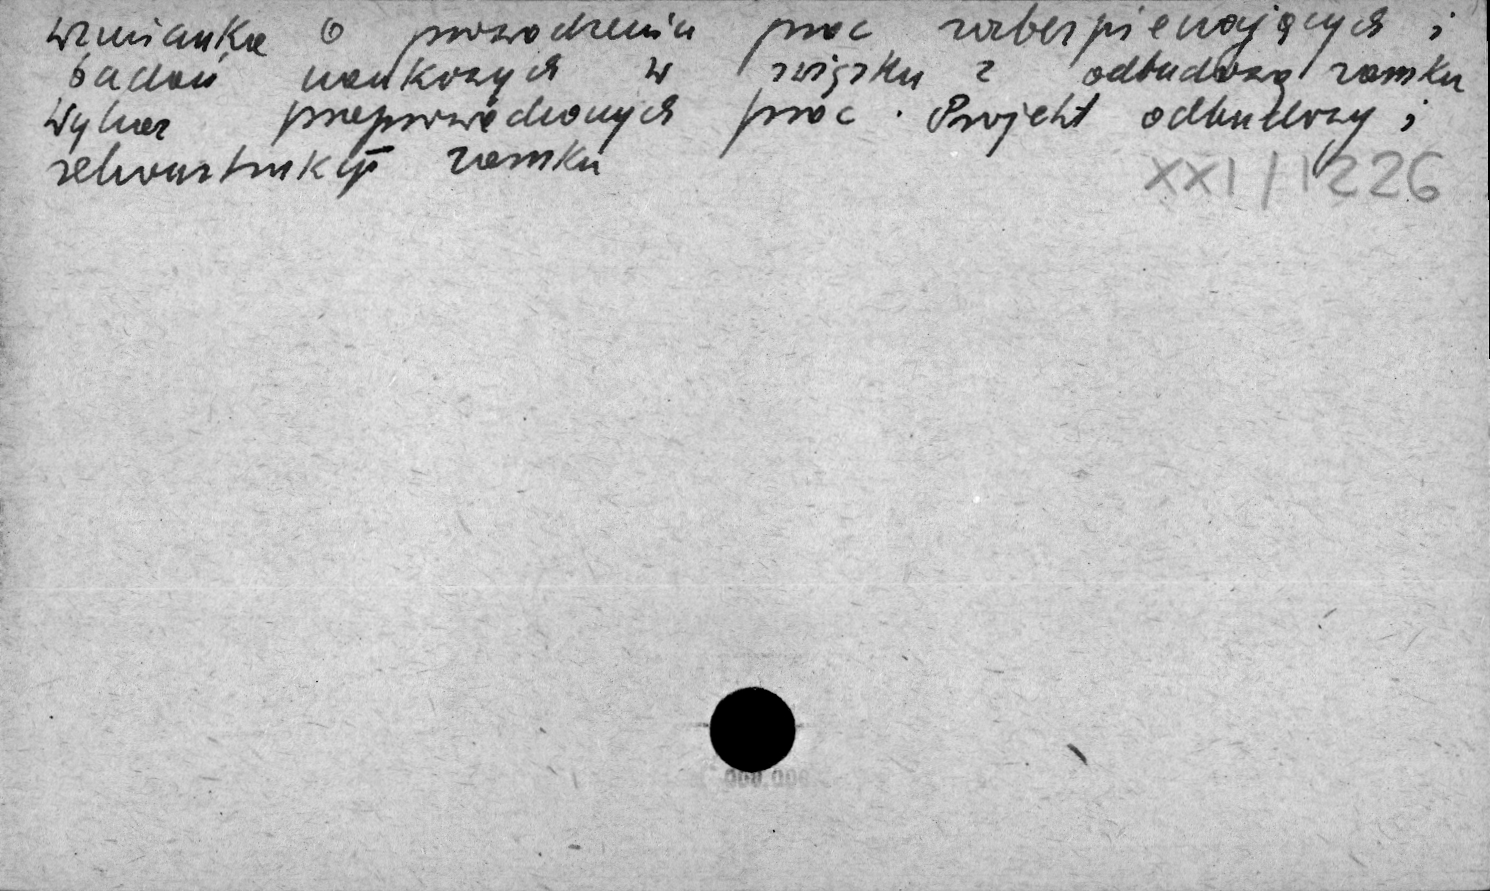 wzmianka o prowadzeniu prac zabezpieczających i
badań naukowych w związku z odbudową zamku
Wykaz przeprowadzonych prac. Projekt odbudowy i
rekonstrukcji zamku
XXI/1226